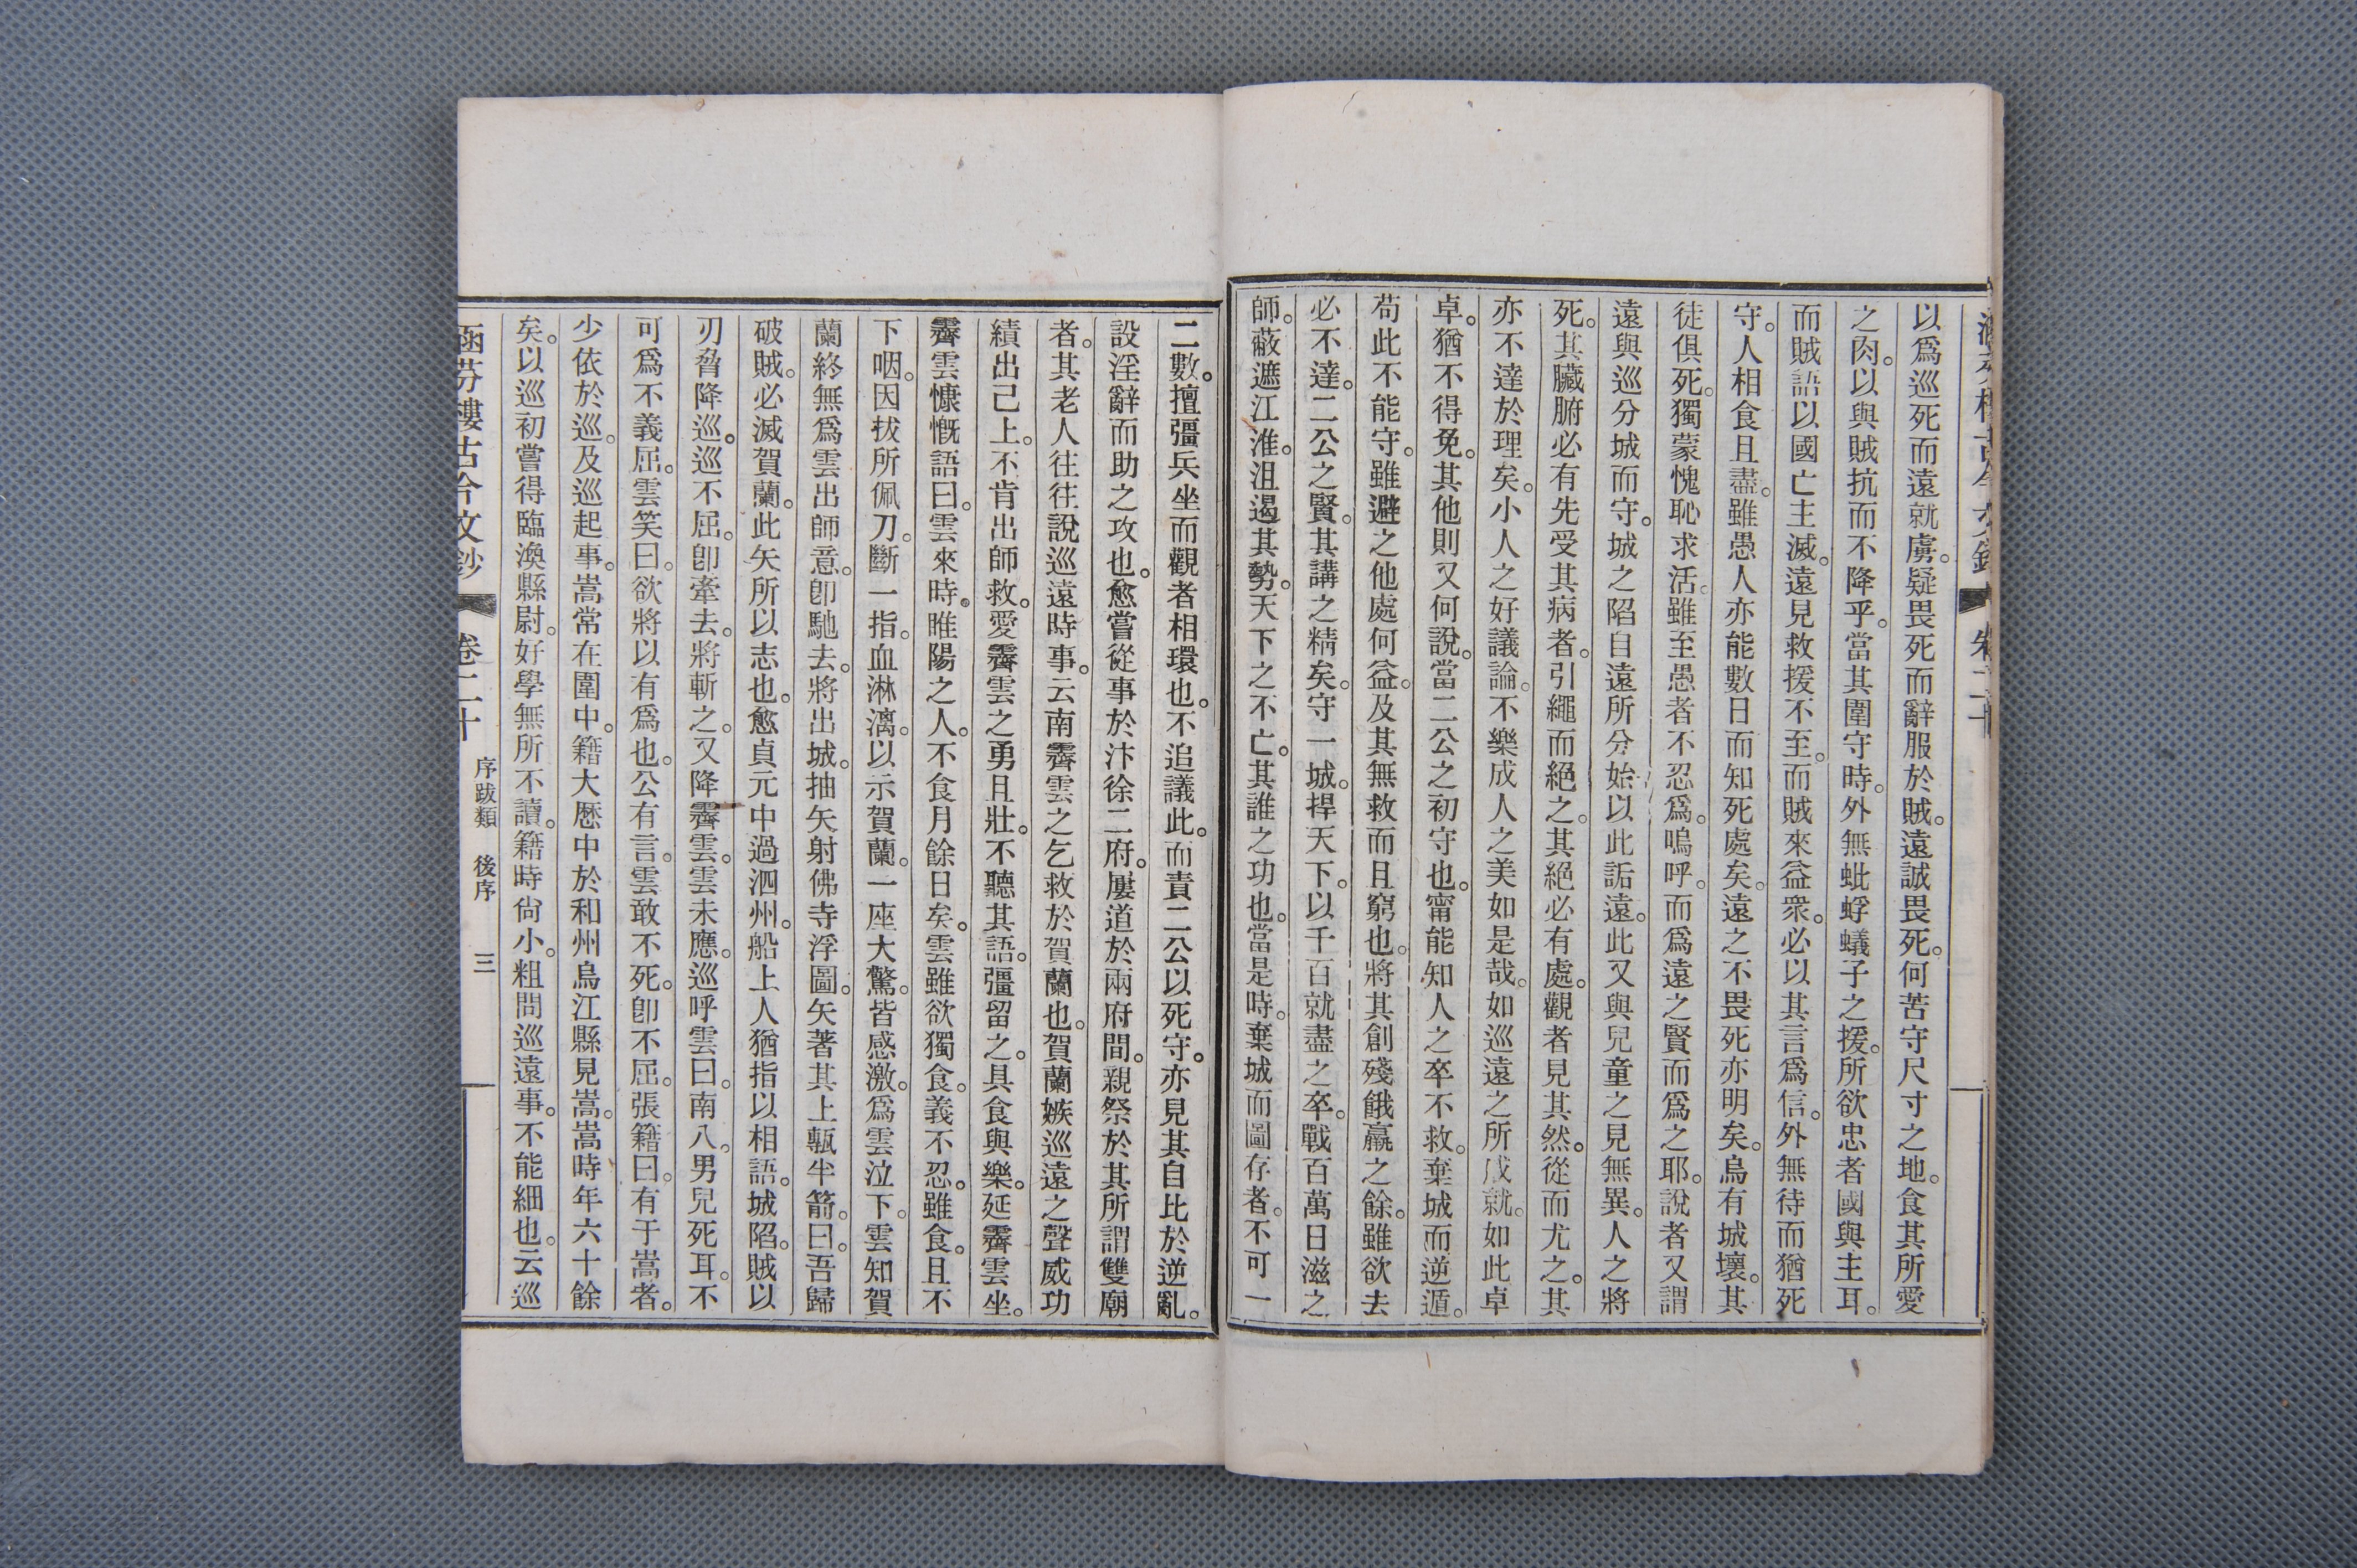 以爲巡死而遠就虜。疑畏死而辭服於賊。遠誠畏死。何苦守尺寸之地。食其所愛
之肉。以與賊抗而不降乎。當其圍守時。外無蚍蜉蟻子之援。所欲忠者國與主耳。
而賊語以國亡主滅。遠見救援不至。而賊來益衆。必以其言爲信。外無待而猶死
守。人相食且盡。雖愚人亦能數日而知死處矣。遠之不畏死亦明矣。烏有城壞。其
徒俱死。獨蒙愧恥求活。雖至愚者不忍爲。嗚呼。而爲遠之賢而爲之耶。說者又謂
遠與巡分城而守。城之陷自遠所分始。以此詬遠。此又與兒童之見無異。人之將
死。其臟腑必有先受其病者。引繩而絕之。其絕必有處。觀者見其然。從而尤之。其
亦不達於理矣。小人之好議論。不樂成人之美如是哉。如巡遠之所成就。如此卓
卓。猶不得免。其他則又何說。當二公之初守也。甯能知人之卒不救。棄城而逆遁。
苟此不能守。雖避之他處何益。及其無救而且窮也。將其創殘餓羸之餘。雖欲去
必不達。二公之賢。其講之精矣。守一城。捍天下。以千百就盡之卒。戰百萬日滋之
師。蔽遮江淮。沮遏其勢。天下之不亡。其誰之功也。當是時。棄城而圖存者。不可一
二數。擅彊兵坐而觀者相環也。不追議此。而責二公以死守。亦見其自比於逆亂。
設淫辭而助之攻也。愈嘗從事於汴徐二府。屢道於兩府間。親祭於其所謂雙廟
者。其老人往往說巡遠時事。云南霽雲之乞救於賀蘭也。賀蘭嫉巡遠之聲威功
績出己上。不肯出師救。愛霽雲之勇且壯。不聽其語。彊留之。具食與樂。延霽雲坐。
霽雲慷慨語曰。雲來時。睢陽之人。不食月餘日矣。雲雖欲獨食。義不忍。雖食。且不
下咽。因拔所佩刀。斷一指。血淋漓。以示賀蘭。一座大驚。皆感激。爲雲泣下。雲知賀
蘭終無爲雲出師意。卽馳去。將出城。抽矢射佛寺浮圖。矢著其上甎半箭。曰。吾歸
破賊。必滅賀蘭。此矢所以志也。愈貞元中過泗州。船上人猶指以相語。城陷。賊以
刃脅降巡。巡不屈。卽牽去。將斬之。又降霽雲。雲未應。巡呼雲曰。南八。男兒死耳。不
可爲不義屈。雲笑曰。欲將以有爲也。公有言。雲敢不死。卽不屈。張籍曰。有于嵩者。
少依於巡。及巡起事。嵩常在圍中。籍大厯中於和州烏江縣見嵩。嵩時年六十餘
矣。以巡初嘗得臨渙縣尉。好學無所不讀。籍時尙小。粗問巡遠事。不能細也。云巡
涵芬樓古今文鈔 卷二十 序跋類 後序 三